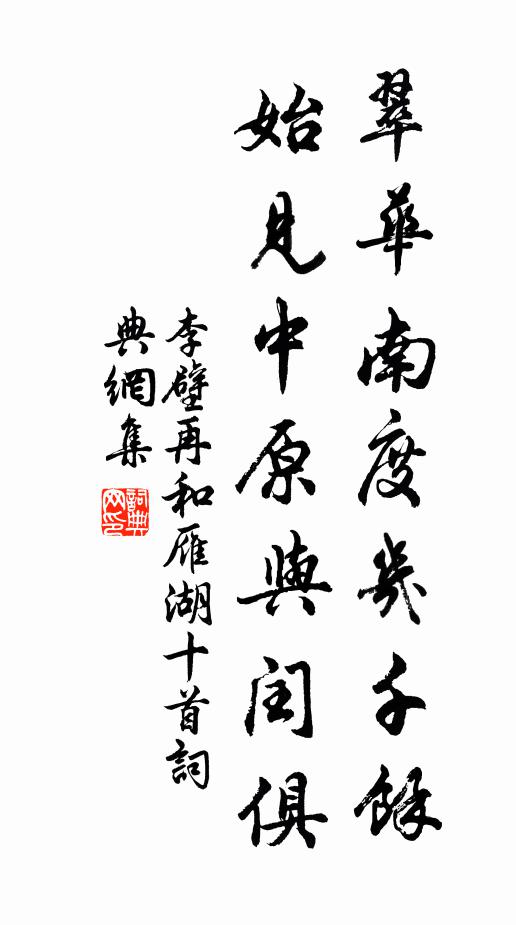 翠華南度幾千餘
始見中原與閏俱
李壁再和雁湖十首詞
典網集
詞典網印